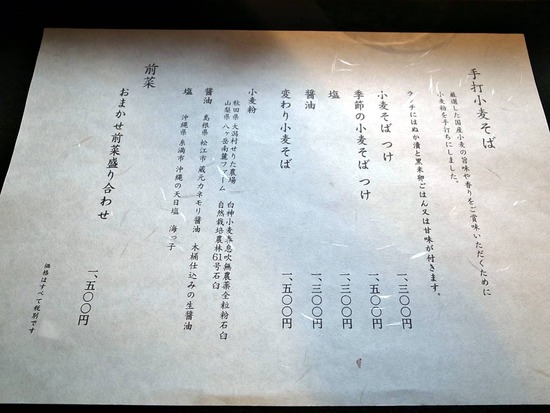 手打小麦そば
厳選した国産小麦の旨味や香りをご賞味いただくために
小麦粉を手打ちにしました。
ランチにはぬか漬と黒米卵ごはん又は甘味が付きます。
小麦そば つけ 一、三〇〇円
季節の小麦そば つけ 一、五〇〇円
塩 一、三〇〇円
醤油 一、三〇〇円
変わり小麦そば 一、五〇〇円
小麦粉
秋田県 大潟村せりた農場 白神小麦春息吹無農薬全粒粉石臼
山梨県 八ヶ岳南麓ファーム 自然栽培農林61号石臼
醤油 島根県 松江市 蔵元カネモリ醤油 木桶仕込みの生醤油
塩 沖縄県 糸満市 沖縄の天日塩 海っ子
前菜
おまかせ前菜盛り合わせ 一、五〇〇円
価格はすべて税別です